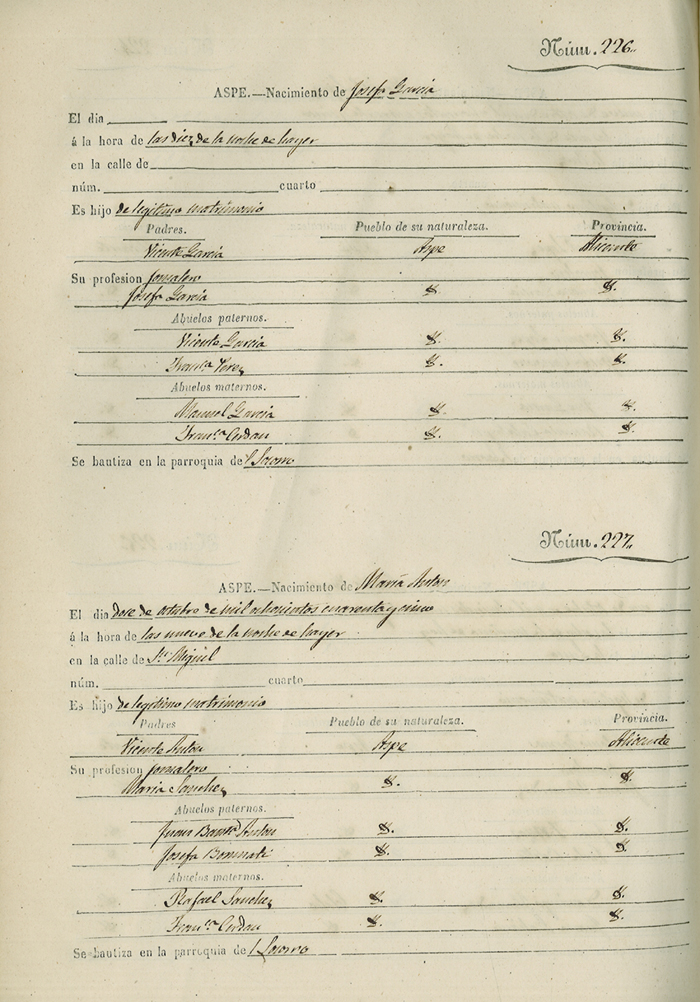 Núm. 226.
ASPE.—Nacimiento de Josefa García
El dia
á la hora de las diez de la noche de hayer
en la calle de
núm. cuarto
Es hijo de legitimo matrimonio
Padres. Pueblo de su naturaleza. Provincia.
Vicente García Aspe Alicante
Su profesion jornalero
Josefa García Id. Id.
Abuelos paternos.
Vicente García Id. Id.
Franca. Id. Id.
Abuelos maternos.
Manuel García Id. Id.
Franca. Cerdan Id. Id.
Se bautiza en la parroquia del Socorro
Núm. 227.
ASPE.—Nacimiento de María Anton
El dia doce de octubre de mil ochocientos cuarenta y cinco
á la hora de las nueve de la noche de hayer
en la calle de Sn. Miguel
núm. cuarto
Es hijo de legitimo matrimonio
Padres Pueblo de su naturaleza. Provincia.
Vicente Anton Aspe Alicante
Su profesion jornalero
Maria Sanchez Id. Id.
Abuelos paternos.
Juan Bauta. Anton Id. Id.
Josefa Bonmati Id. Id.
Abuelos maternos.
Rafael Sanchez Id. Id.
Franca. Cerdan Id. Id.
Se bautiza en la parroquia del Socorro